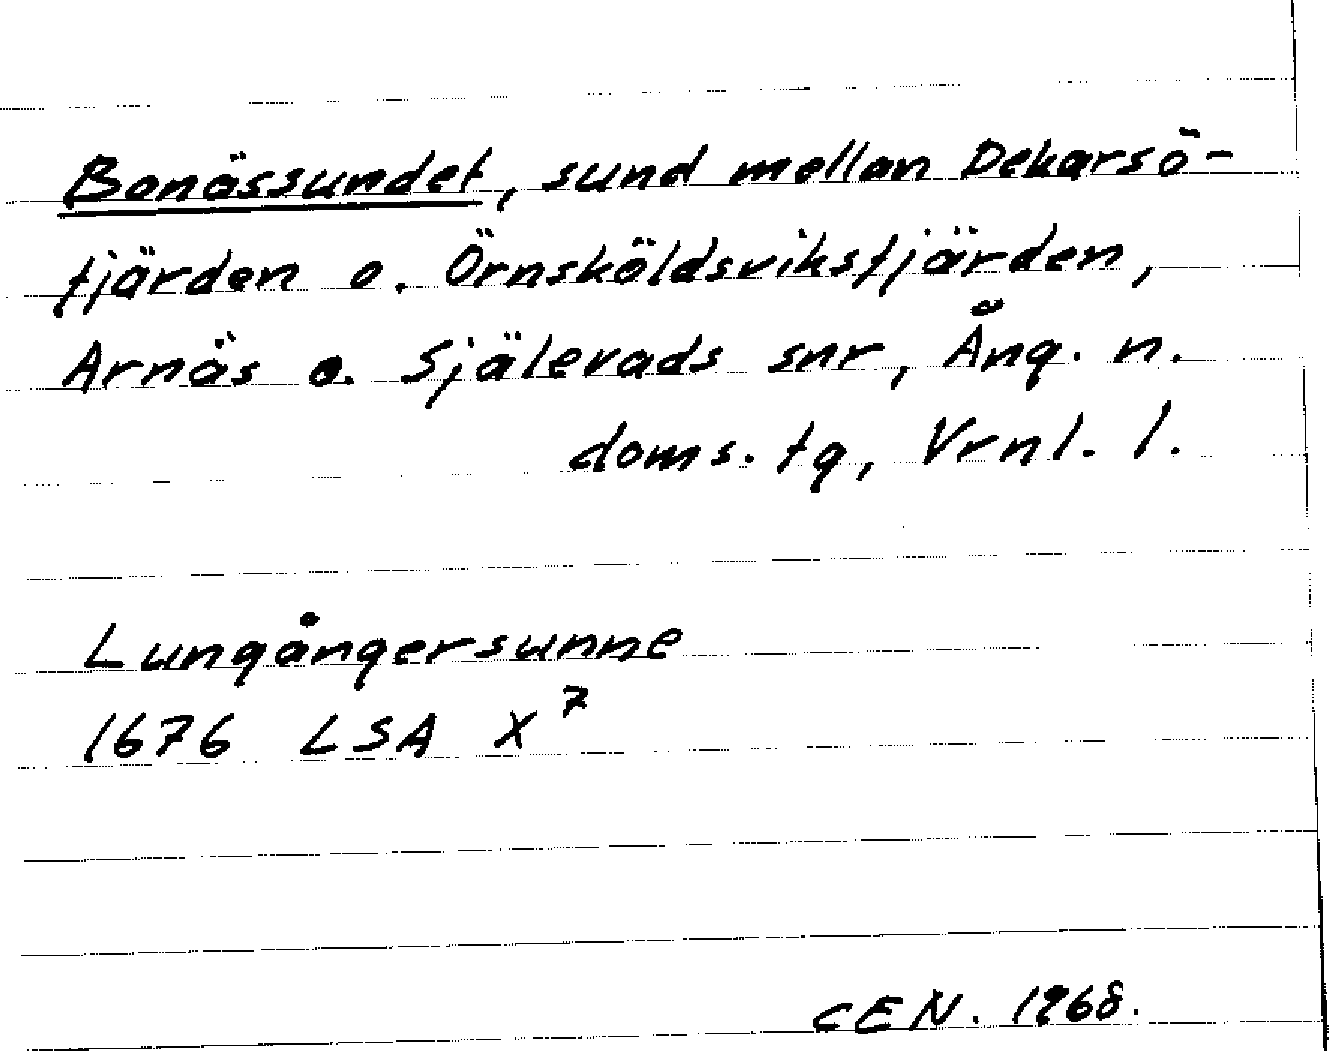 Bonässundet, sund mellan Dekarsö-
fjärden o. Örnsköldsviksfjärden,
Arnäs o. Själevads snr, Ång. n.
doms. tg, Vrnl. l.
Lungångersunne
1676 LSA X⁷
CEN. 1968.